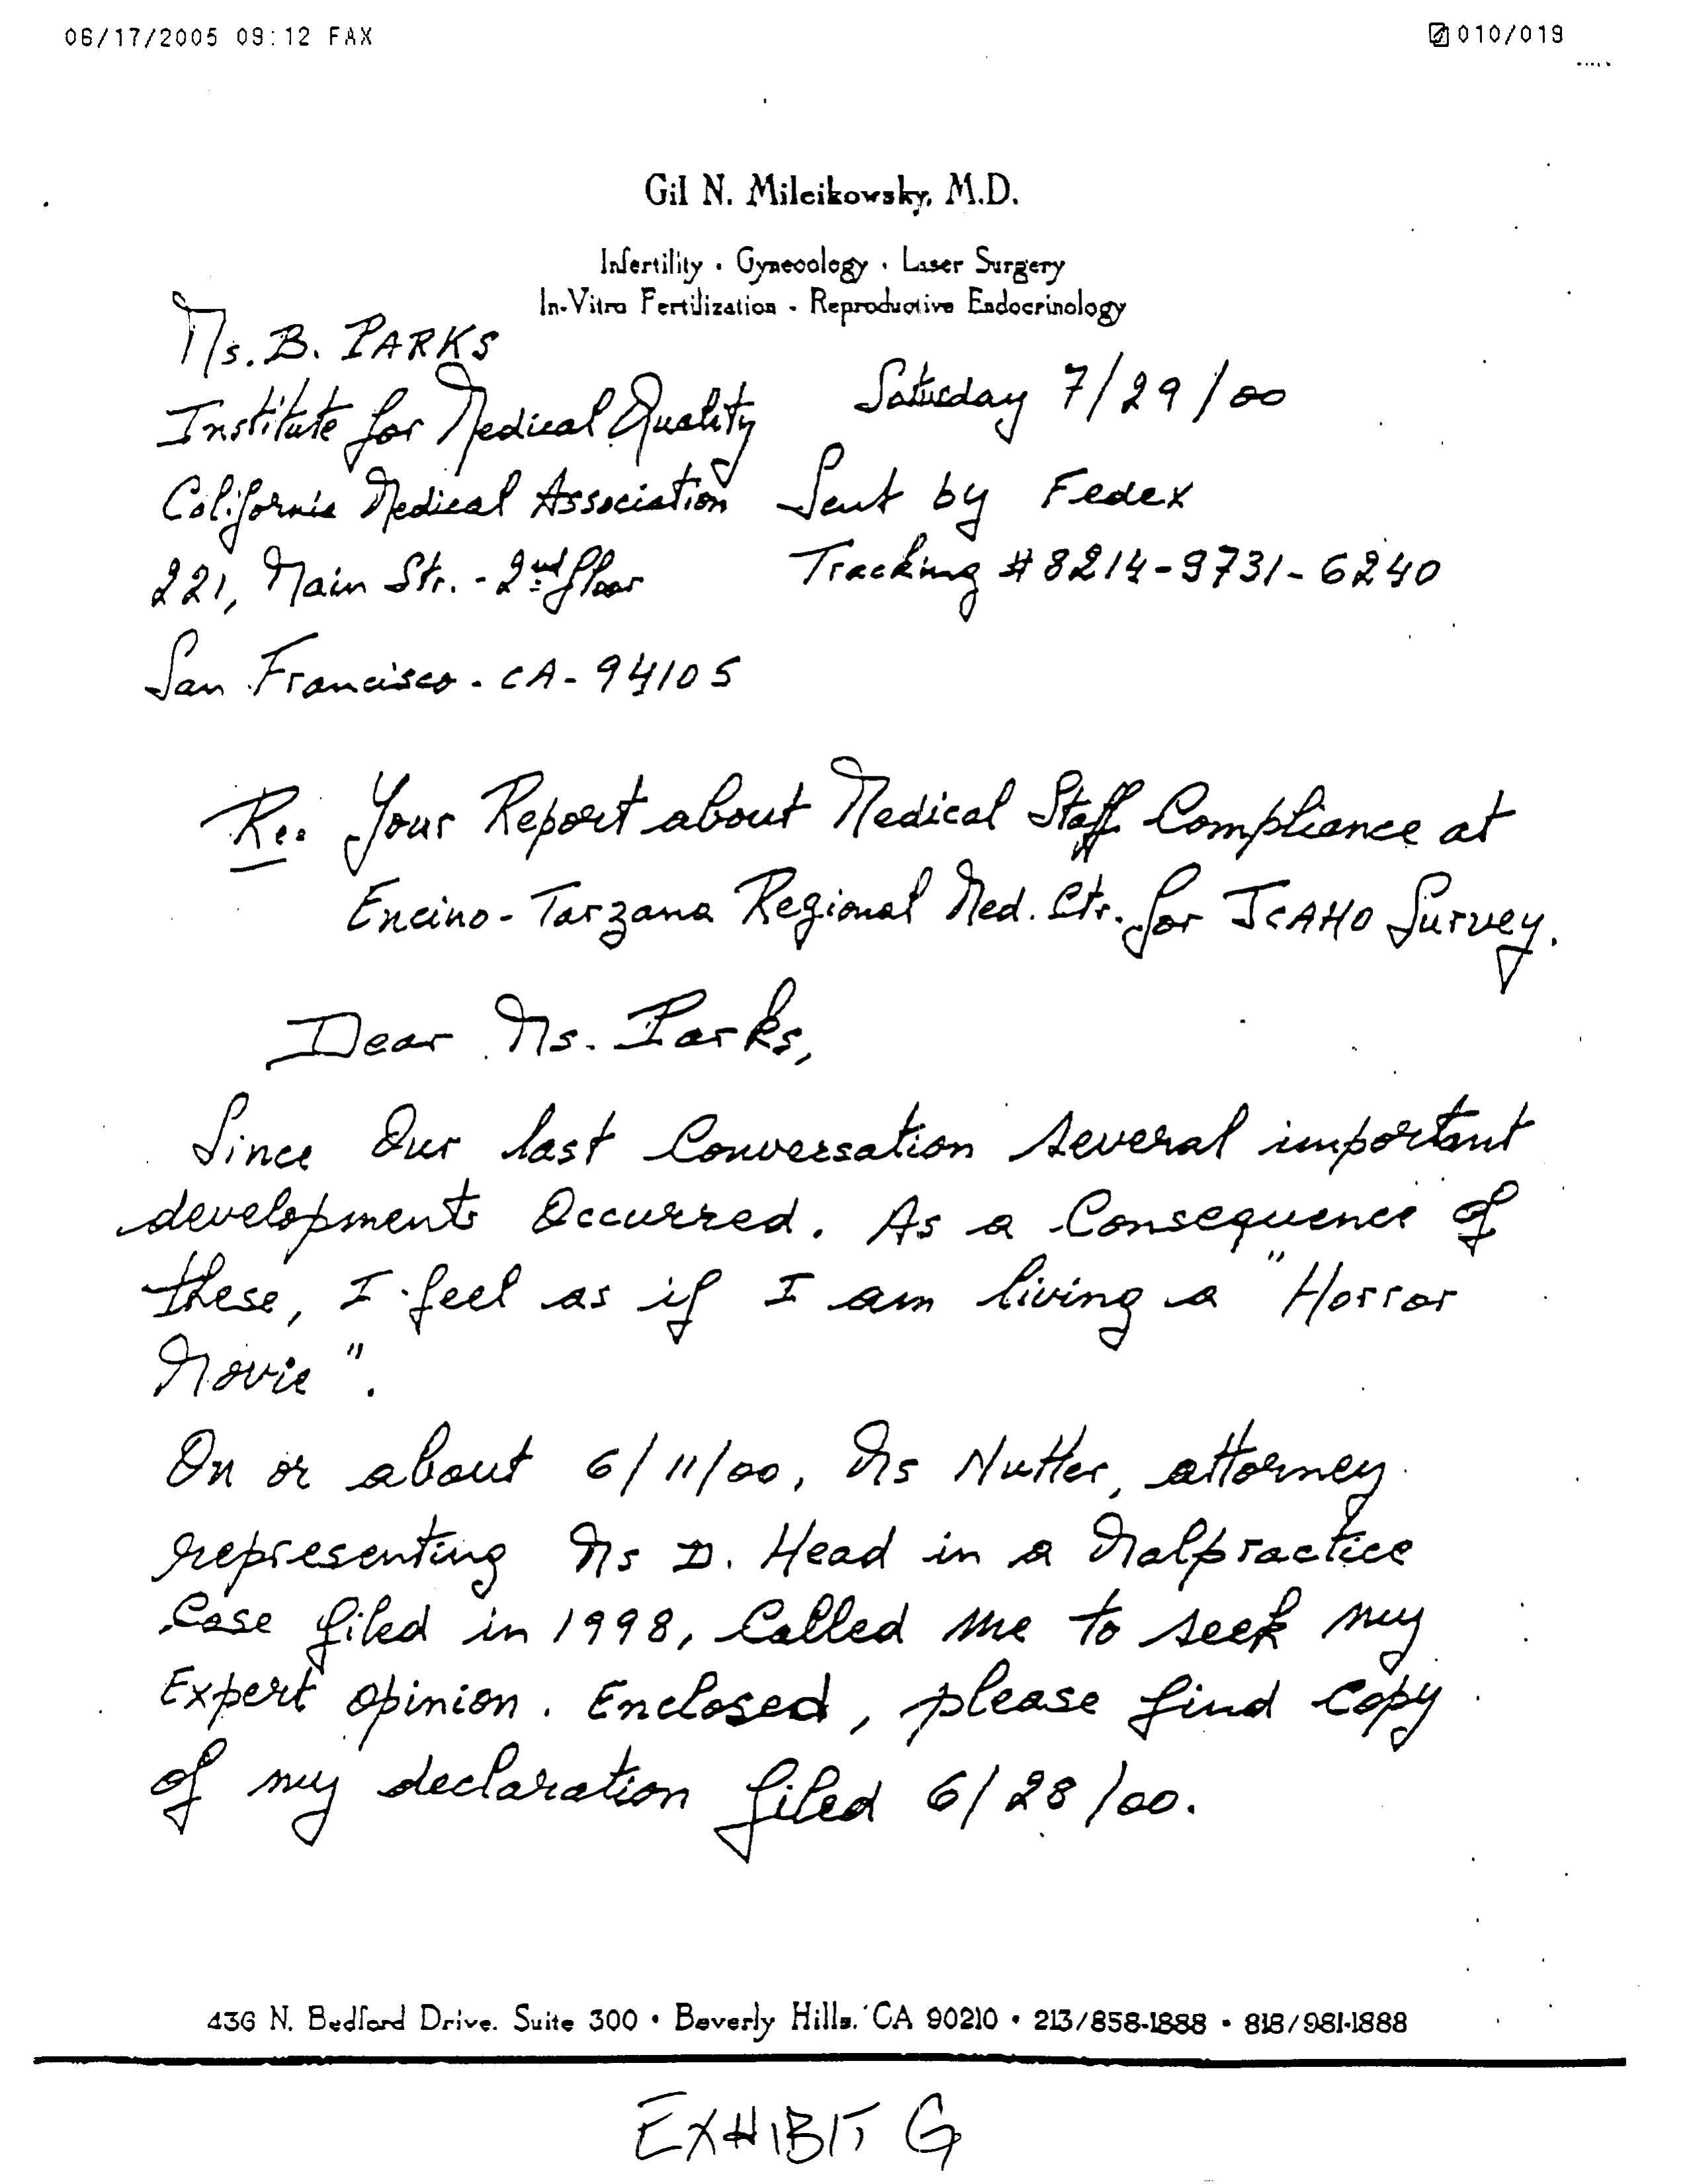 06/17/2005 09:12 FAX 010/019
Gil N. Mileikowsky, M.D.
Infertility · Gynecology · Laser Surgery
In-Vitro Fertilization - Reproductive Endocrinology
Ms. B. PARKS
Institute for Medical Quality Saturday 7/29/00
California Medical Association Sent by Fedex
221, Main Str. - 2nd floor Tracking # 8214-9731-6240
San Francisco - CA - 94105
Re: Your Report about Medical Staff Compliance at
Encino-Tarzana Regional Med. Ctr. for JCAHO Survey.
Dear Ms. Parks,
Since Our last Conversation several important
developments Occurred. As a Consequence of
these, I feel as if I am living a "Horror
Movie".
On or about 6/11/00, Ms Nutter, attorney
representing Ms D. Head in a Malpractice
Case filed in 1998, Called me to seek my
Expert opinion. Enclosed, please find Copy
of my declaration filed 6/28/00.
436 N. Bedford Drive. Suite 300 • Beverly Hills. CA 90210 • 213/858-1888 • 818/981-1888
EXHIBIT G